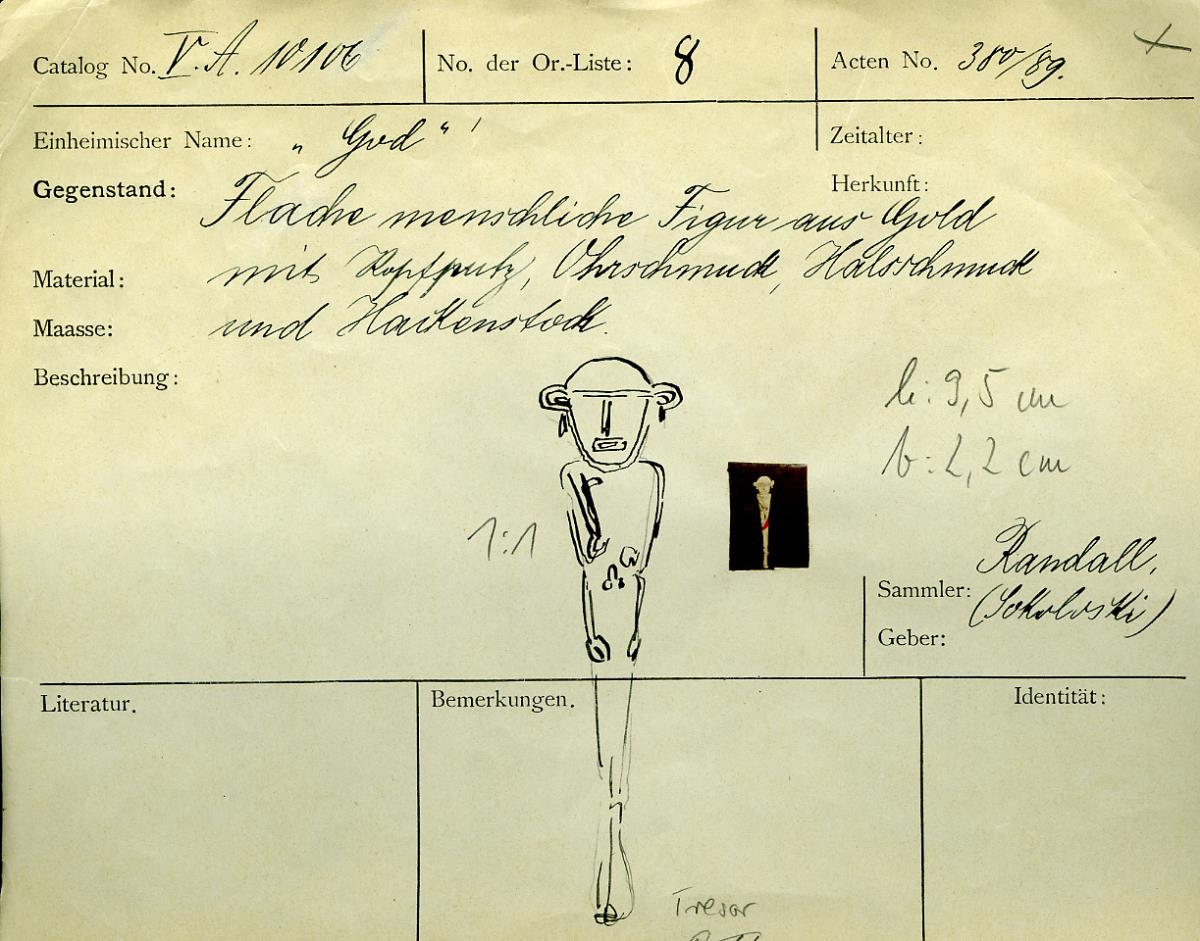 Catalog No. V. A. 10106 No. der Or.-Liste: 8 Acten No. 380/89.
Einheimischer Name: „ God “ Zeitalter:
Gegenstand: Herkunft:
Flache menschliche Figur aus Gold
Material: mit Kopfputz, Ohrschmuck, Halsschmuck
Maasse: und Hackenstock.
Beschreibung:
h: 9,5 cm
b: 2,2 cm
1:1
Randall,
Sammler: (Sokoloski)
Geber:
Literatur. Bemerkungen. Identität:
Tresor